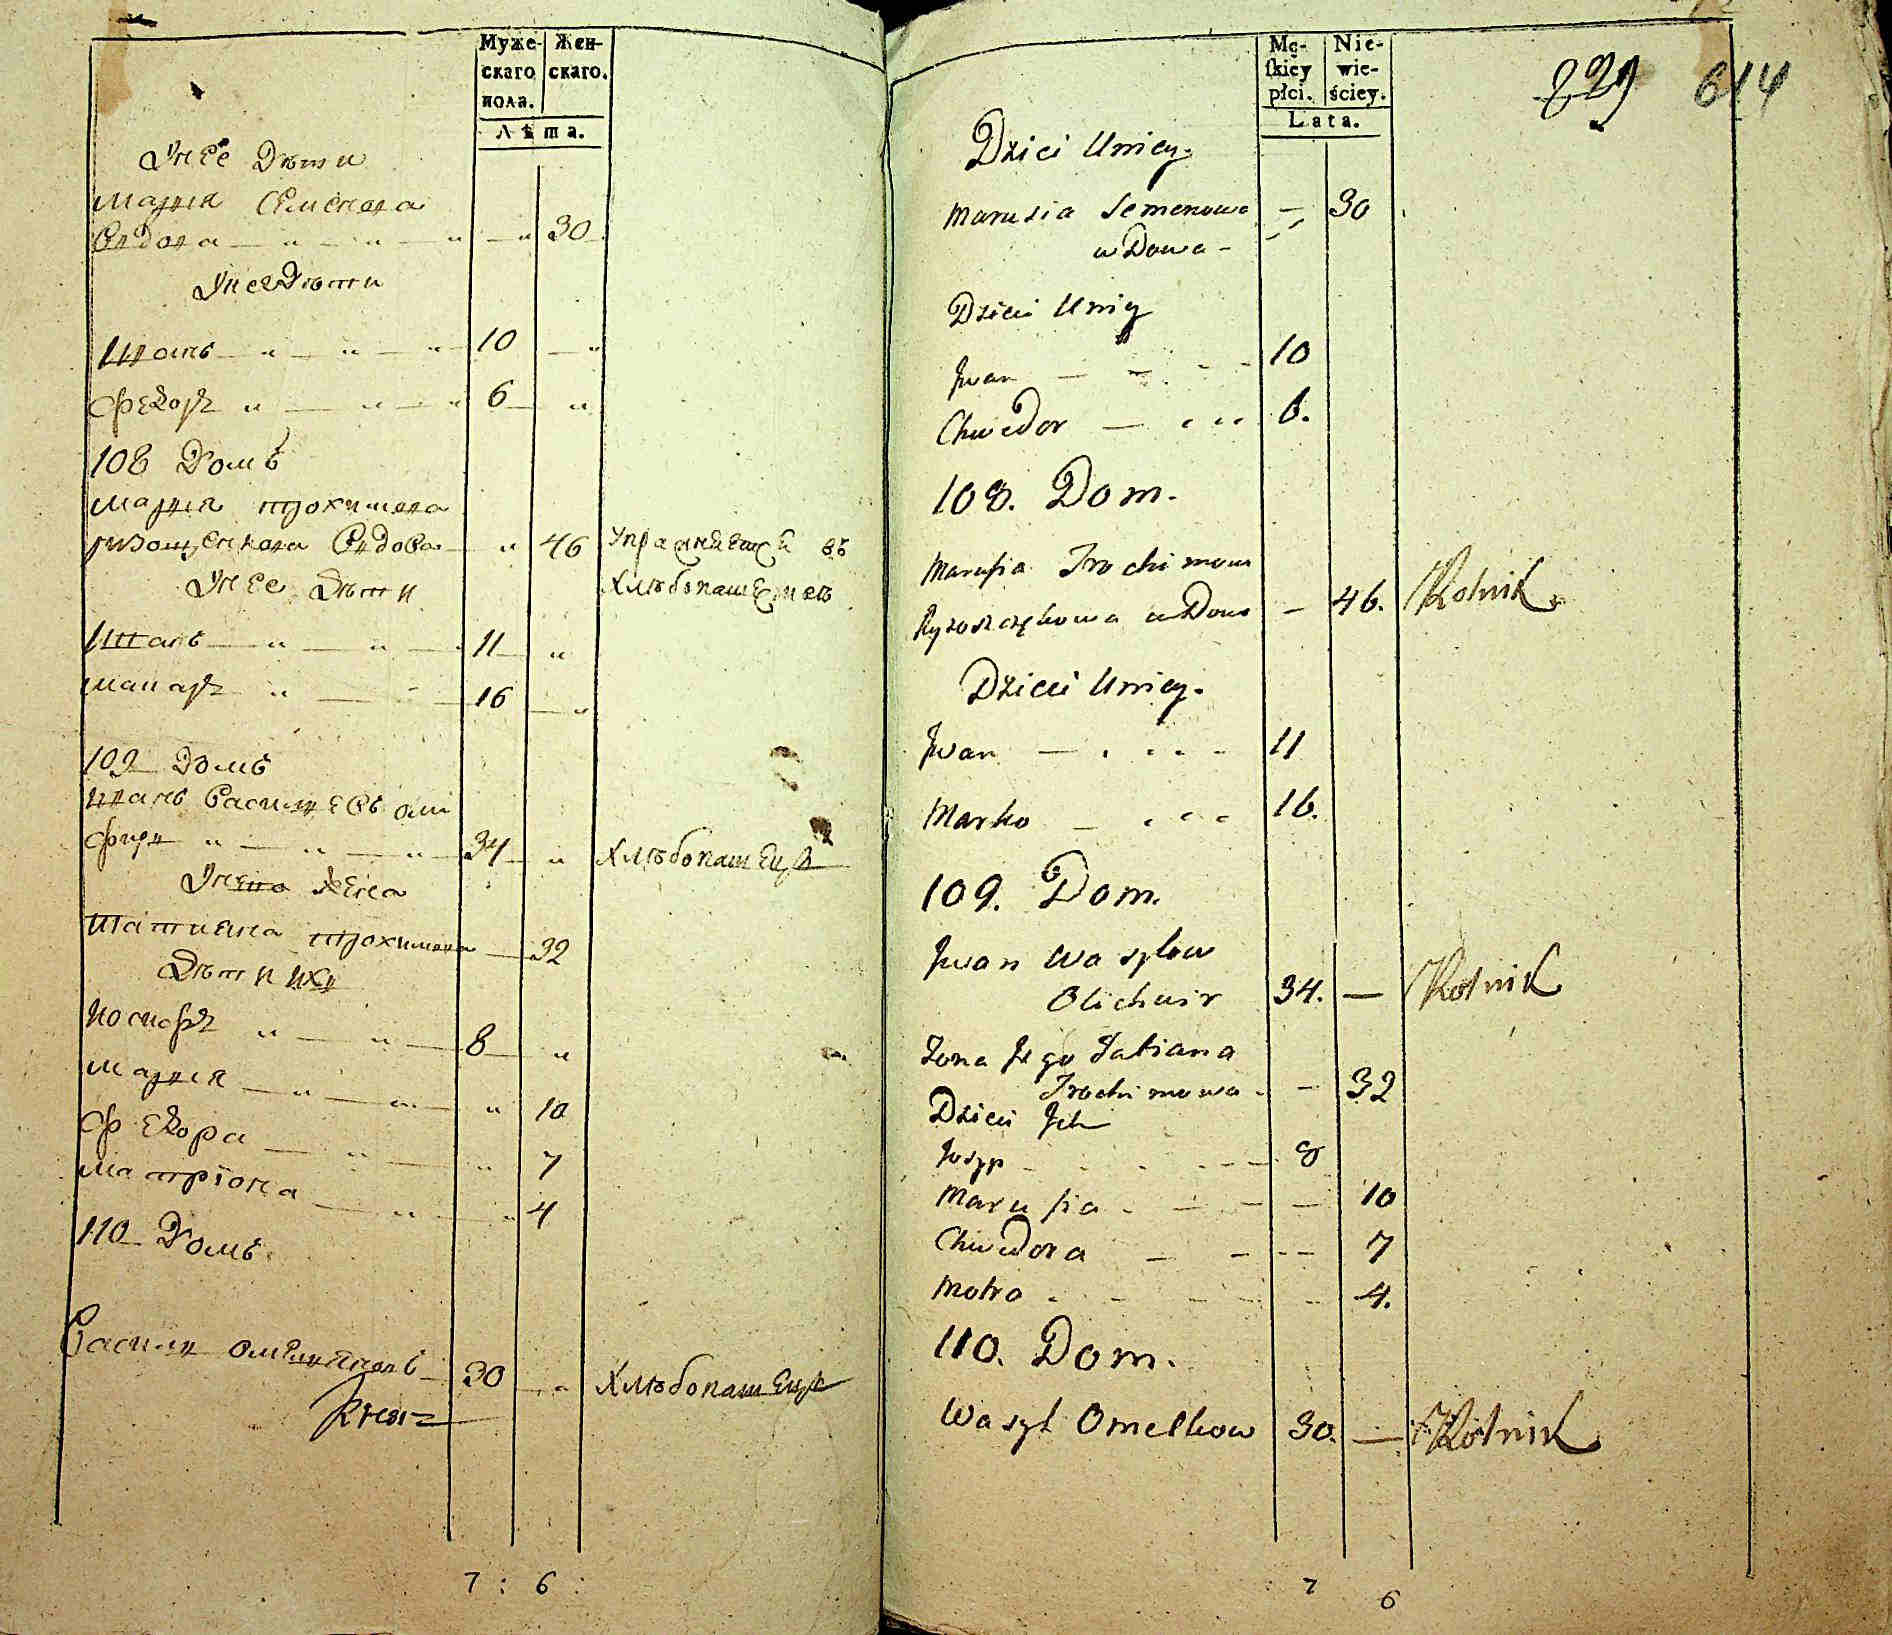 Муже-
скаго
пола.
Жен-
скаго.
Лѣта.
У нее Дѣти
Мария Семенова
Вдова 30
У нее Дѣти
Иванъ 10
Федоръ 6
108 Домъ
Мария Трохимова
Вдова 46 Упражняется въ
У нее Дѣти Хлѣбопашествѣ
Иванъ 11
Макаръ 16
109 Домъ
Иванъ Василиевъ Оли
фиръ 34 Хлѣбопашецъ
У него Жена
Татиена Трохимова 32
Дѣти ихъ
Иосифъ 8
Мария 10
Федора 7
Матріона 4
110 Домъ
Василий Омеляновъ 30 Хлѣбопашецъ
7 : 6 :
Mę-
skiey
płci.
Nie-
wie-
ściey.
Lata.
229 614
Dzieci Uniey.
Marusia Semenowa — 30
wDowa -
Dzieci Uniey
Jwan 10
Chwedor 6.
108. Dom.
Marusia Trochimowa
Ryzoszczękowa wDowa — 46. Rolnik
Dzieci Uniey.
Jwan 11
Marko 16.
109. Dom.
Jwan Wasylow
Olichwir 34. — Rolnik
Zona Jego Tatiana
Trochimowa — 32
Dzieci Jch
Jozyp 8
Marusia 10
Chwedora 7
Motra 4.
110. Dom.
Wasyl Omelkow 30. — Rolnik
7 6